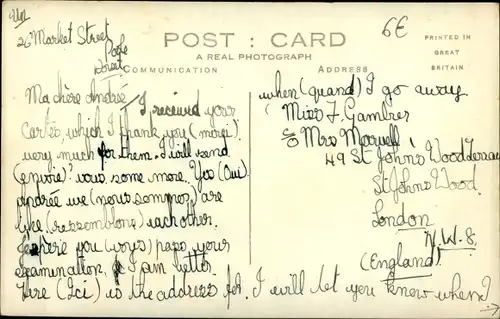 6E
26 Market Street
Poole
Dorset
POST : CARD
A REAL PHOTOGRAPH
PRINTED IN
GREAT
BRITAIN
COMMUNICATION
ADDRESS
Ma chère Andrée
I received your
cartes, which I thank you (merci)
very much for them. I will send
(envoie) vous some more. Yes (Oui)
Andrée we (nous sommes) are
like (ressemblons) each other.
I you (vous) pass your
examination, I am better.
Here (Ici) is the address for. I will let you know when?
when (quand) I go away.
Miss J. Gambier
Mrs Maxwell
49 St. John's Wood Terrace
St Johns Wood.
London
N.W.8.
(England)